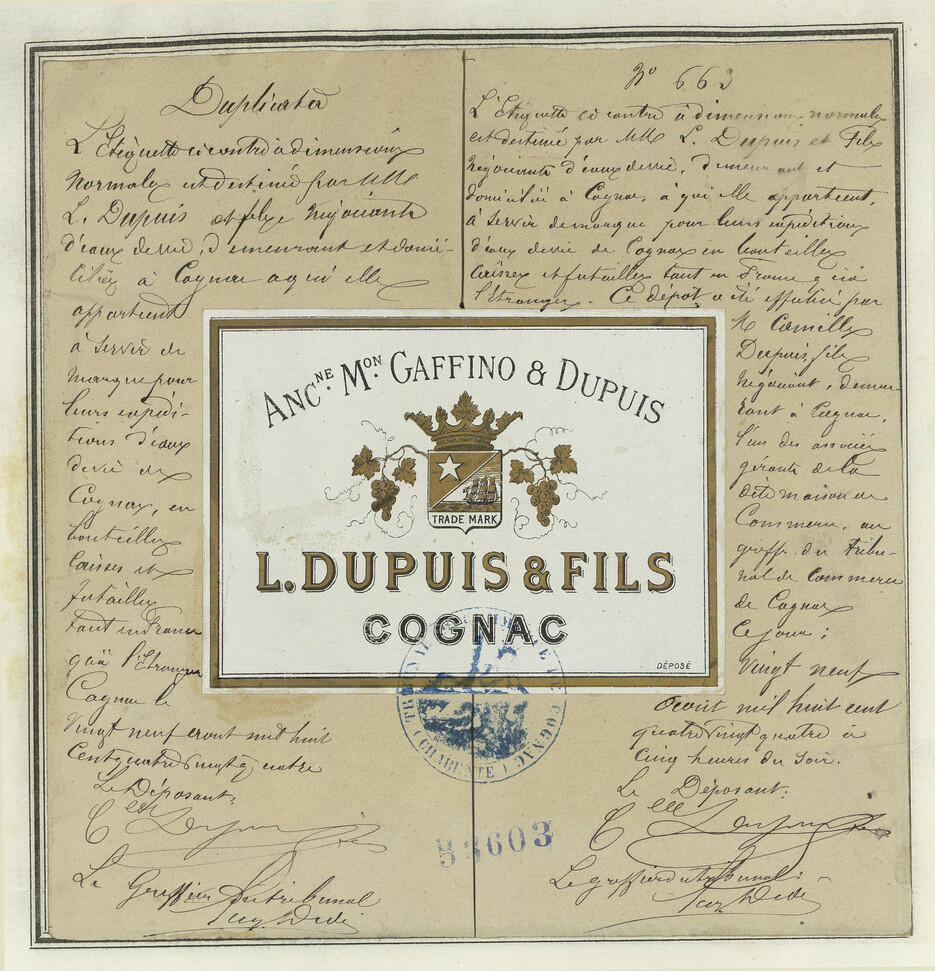 Duplicata
L'Etiquette ci contre à dimensions
normales est destinée par MM
L. Dupuis et fils Négociants
d'eaux de vie, demeurant et domi-
ciliés à Cognac a qui elle
appartient
à servir de
marque pour
leurs expédi-
tions d'eaux
de vie de
Cognac, en
bouteilles
Caisses et
futailles
tant en France
qu'à l'Etranger
Cognac le
Vingt neuf aout mil huit
Cent quatre vingt quatre
Le Déposant:
Le Greffier du tribunal
N° 663
L'Etiquette ci contre à dimensions normales
est destinée par MM L. Dupuis et Fils
Négociants d'eaux de vie, demeurant et
domiciliés à Cognac, à qui elle appartient,
à servir de marque pour leurs expéditions
d'eaux de vie de Cognac en bouteilles
Caisses et futailles tant en France qu'à
l'Etranger. Ce dépôt a été effectué par
M Camille
Dupuis fils
Négociant, demeu-
rant à Cognac,
l'un des associés
gérants de la
dite maison de
Commerce, au
greffe du Tribu-
nal de Commerce
de Cognac
Ce jour;
Vingt neuf
Aout mil huit cent
quatre vingt quatre à
Cinq heures du soir.
Le Déposant:
Le greffier du tribunal:
ANCNE. MON. GAFFINO & DUPUIS
TRADE MARK
L. DUPUIS & FILS
COGNAC
DÉPOSÉ
TRIBUNAL DE COMMERCE DE COGNAC (CHARENTE)